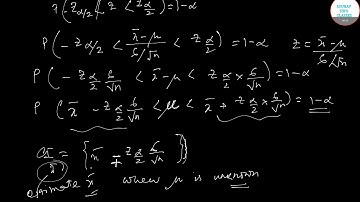 P(Zα/2 < Z < Zα/2) = 1-α
P(-Zα/2 < x̄-μ / σ/√n < Zα/2) = 1-α Z = x̄-μ / σ/√n
P(-Zα/2 σ/√n < x̄-μ < Zα/2 × σ/√n) = 1-α
P(x̄ - Zα/2 σ/√n < μ < x̄ + Zα/2 × σ/√n) = 1-α
CI = {x̄ ∓ Zα/2 σ/√n}
estimate x̄ when μ is unknown